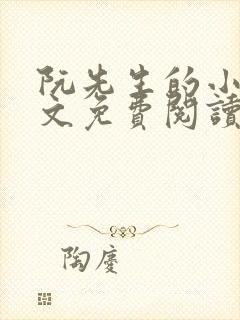 阮先生的小
文免費閱讀
陶慶